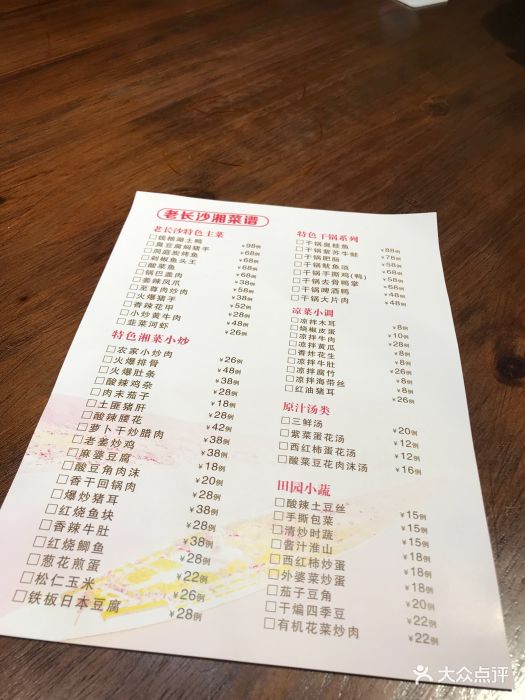 老长沙湘菜谱
老长沙特色主菜
□钱粮湖土鸭 ¥98例
□臭豆腐焖猪手 ¥68例
□洞庭炭烤鱼 ¥68例
□剁椒鱼头王 ¥68例
□酸菜鱼 ¥68例
□锅巴盖肉 ¥38例
□姜辣凤爪 ¥58例
□至尊肉炒肉 ¥38例
□火爆猪手 ¥52例
□香辣花甲 ¥28例
□小炒黄牛肉 ¥48例
□韭菜河虾 ¥48例
特色湘菜小炒
□农家小炒肉 ¥26例
□火爆排骨 ¥48例
□火爆肚条 ¥38例
□酸辣鸡杂 ¥28例
□肉末茄子 ¥18例
□土匪猪肝 ¥28例
□酸辣腰花 ¥42例
□萝卜干炒腊肉 ¥38例
□老姜炒鸡 ¥38例
□麻婆豆腐 ¥18例
□酸豆角肉沫 ¥20例
□香干回锅肉 ¥28例
□爆炒猪耳 ¥38例
□红烧鱼块 ¥28例
□香辣牛肚 ¥38例
□红烧鲫鱼 ¥28例
□葱花煎蛋 ¥22例
□松仁玉米 ¥26例
□铁板日本豆腐 ¥28例
特色干锅系列
□干锅臭桂鱼 ¥88例
□干锅紫苏牛蛙 ¥78例
□干锅肥肠 ¥58例
□干锅鱿鱼须 ¥58例
□干锅手撕鸡(鸭) ¥68例
□干锅去骨鸭掌 ¥68例
□干锅啤酒鸭 ¥68例
□干锅大片肉 ¥48例
凉菜小调
□凉拌木耳 ¥8例
□烧椒皮蛋 ¥10例
□凉拌牛肉
□凉拌黄瓜 ¥8例
□香炸花生 ¥8例
□凉拌牛肚
□凉拌腐竹
□凉拌海带丝 ¥8例
□红油猪耳 ¥26例
原汁汤类
□三鲜汤 ¥20例
□紫菜蛋花汤 ¥12例
□西红柿蛋花汤 ¥12例
□酸菜豆花肉沫汤 ¥16例
田园小蔬
□酸辣土豆丝 ¥15例
□手撕包菜 ¥15例
□清炒时蔬 ¥15例
□酱汁淮山 ¥18例
□西红柿炒蛋 ¥18例
□外婆菜炒蛋 ¥20例
□茄子豆角 ¥20例
□干煸四季豆 ¥22例
□有机花菜炒肉 ¥22例
大众点评